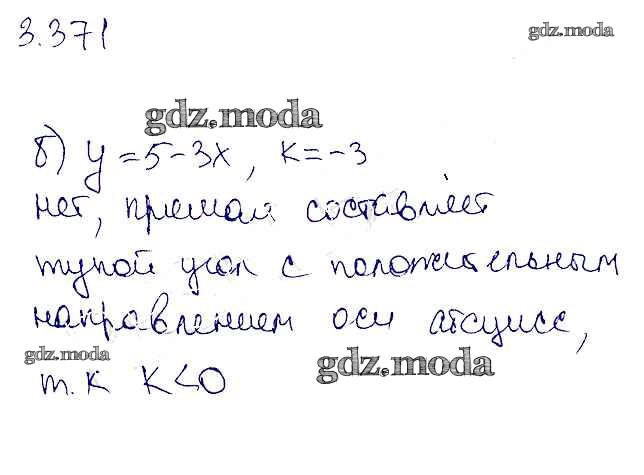 3.371
gdz.moda
gdz.moda
б) y = 5 - 3x, k = -3
нет, прямая составляет
тупой угол с положительным
направлением оси абсцисс,
gdz.moda
gdz.moda
т.к k < 0